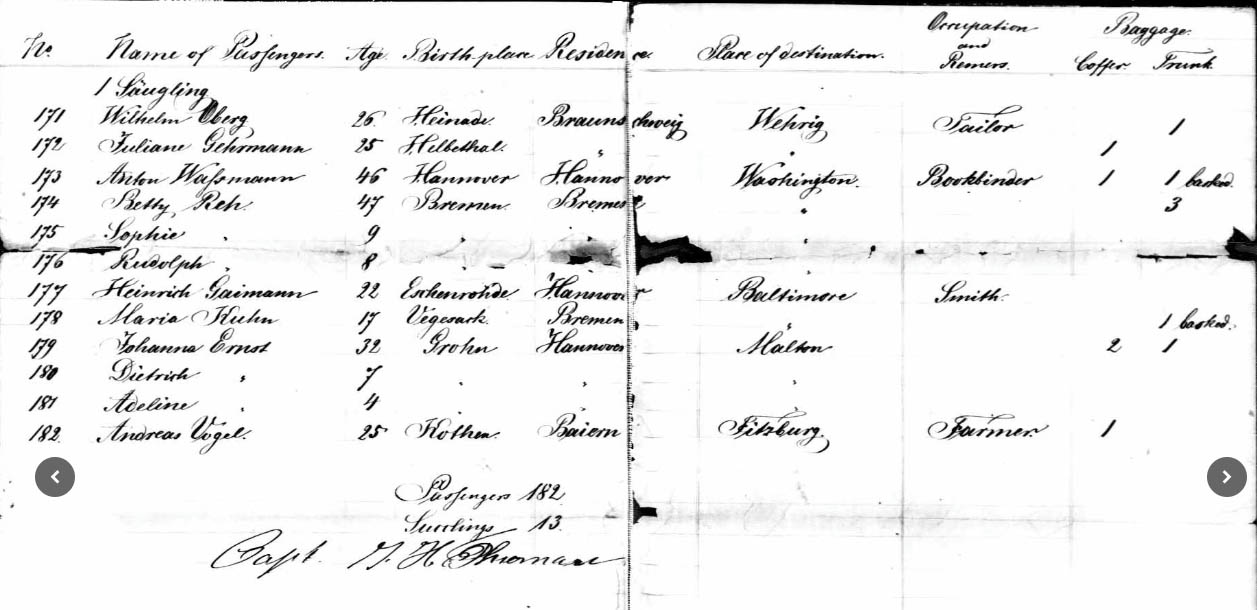 No. Name of Passengers. Age. Birth-place Residence. Place of destination. Occupation and Remers. Baggage. Coffer. Trunk.
1 Säugling
171 Wilhelm Oberg 26 Heinade. Braunschweig Wehrig Tailor 1
172 Juliane Gehrmann 25 Helbethal. " " 1
173 Anton Waſsmann 46 Hannover Hannover Washington. Bookbinder 1 1 basked.
174 Betty Reh. 47 Bremen. Bremen " 3
175 Sophie " 9 " " "
176 Rudolph " 8 " "
177 Heinrich Gaimann 22 Eschenrohde. Hannover Baltimore Smith.
178 Maria Kuhn 17 Vegesack. Bremen 1 basked.
179 Johanna Ernst 32 Grohn Hannover Malton 2 1
180 Dietrich " 7 " " "
181 Adeline " 4 " "
182. Andreas Vogel. 25 Kothen. Baiern Fitzburg. Farmer. 1
Paſsengers 182.
Sucklings 13.
Capt. H.